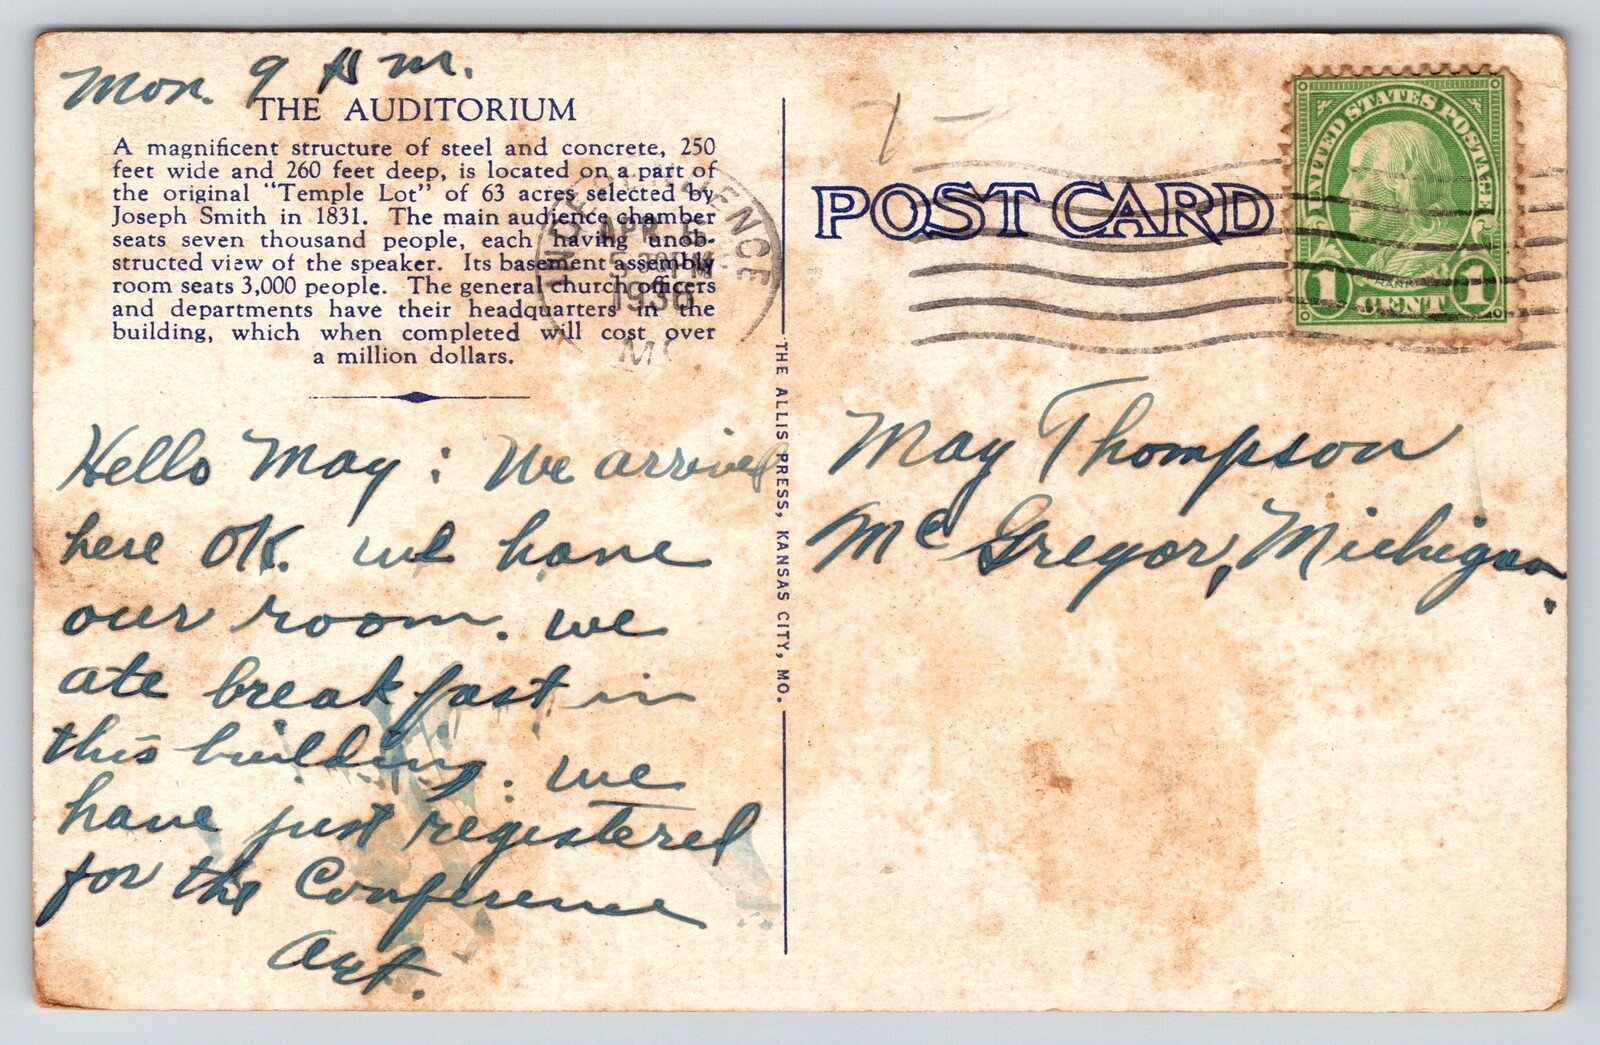 Mon. 9 A m.
THE AUDITORIUM
A magnificent structure of steel and concrete, 250
feet wide and 260 feet deep, is located on a part of
the original "Temple Lot" of 63 acres selected by
Joseph Smith in 1831. The main audience chamber
seats seven thousand people, each having unob-
structed view of the speaker. Its basement assembly
room seats 3,000 people. The general church officers
and departments have their headquarters in the
building, which when completed will cost over
a million dollars.
INDEPENDENCE
APR 6
PM
1936
MO
Hello May: We arrived
here OK. we have
our room. we
ate breakfast in
this building. we
have just registered
for the Conference
Art.
THE ALLIS PRESS, KANSAS CITY, MO.
POST CARD
UNITED STATES POSTAGE
FRANKLIN
1 CENT 1
May Thompson
McGregor, Michigan.